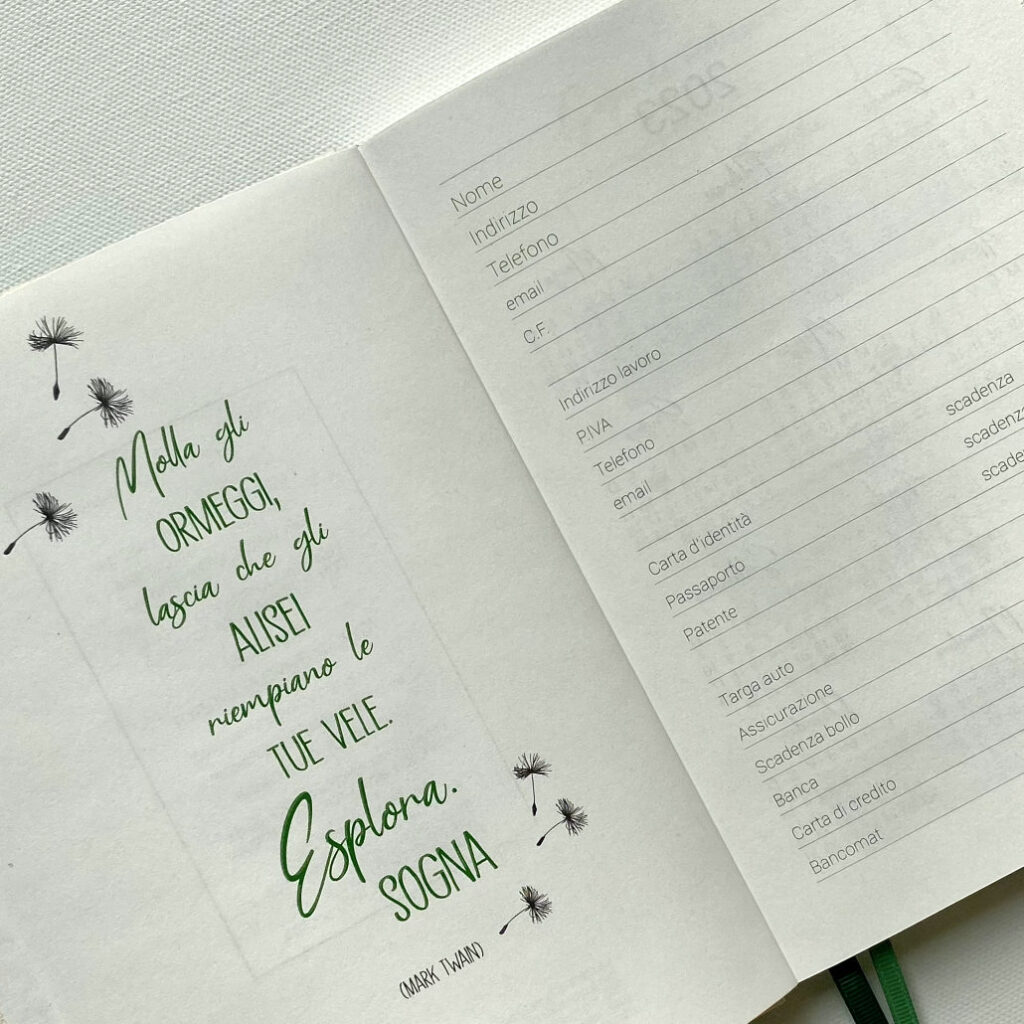 Molla gli
ORMEGGI,
lascia che gli
ALISEI
riempiano le
TUE VELE.
Esplora.
SOGNA
(MARK TWAIN)
2023
Nome
Indirizzo
Telefono
email
C.F.
Indirizzo lavoro
P.IVA
Telefono
email
Carta d'identità scadenza
Passaporto scadenza
Patente scade
Targa auto
Assicurazione
Scadenza bollo
Banca
Carta di credito
Bancomat